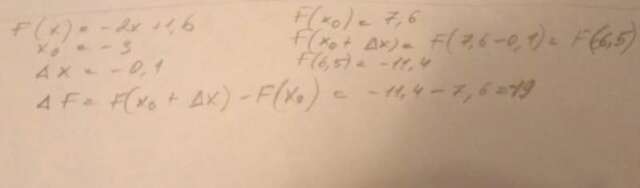 F(x) = -2x + 1,6
x₀ = -3
Δx = -0,1
F(x₀) = 7,6
F(x₀ + Δx) = F(7,6 - 0,1) = F(6,5)
F(6,5) = -11,4
ΔF = F(x₀ + Δx) - F(x₀) = -11,4 - 7,6 = -19